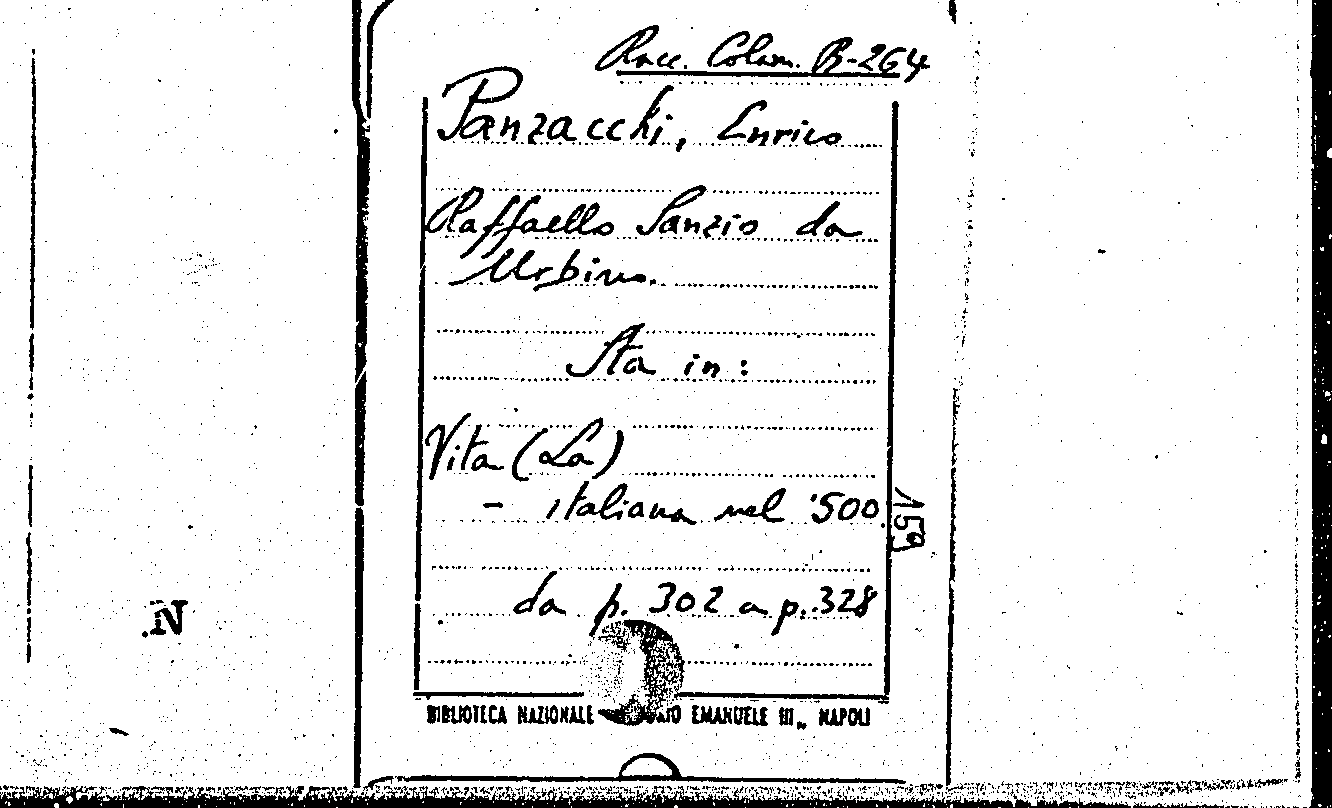 Racc. Colom. B-264
Panzacchi, Enrico
Raffaello Sanzio da
Urbino.
Sta in:
Vita (La)
- italiana nel '500
159
da p. 302 a p. 328
N.
BIBLIOTECA NAZIONALE EMANUELE III„ NAPOLI